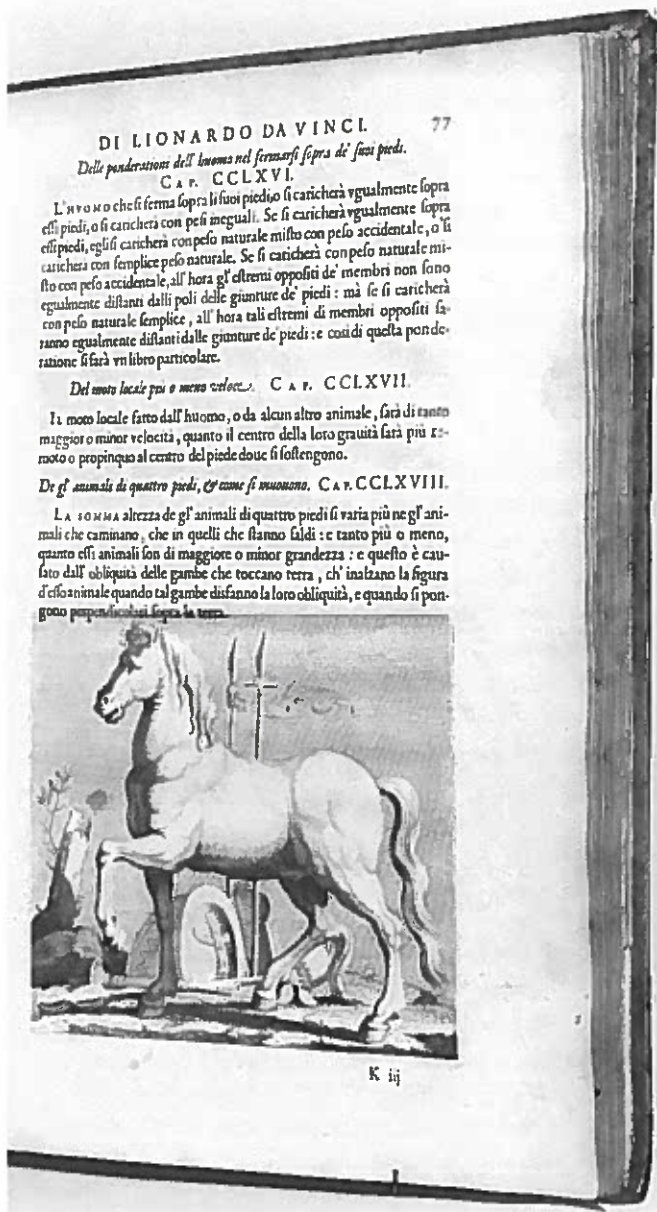 DI LIONARDO DA VINCI. 77
Delle ponderationi dell' huomo nel fermarsi sopra de' suoi piedi.
CAP. CCLXVI.
L'HVOMO che si ferma sopra li suoi piedi, o si caricherà vgualmente sopra
essi piedi, o si caricherà con pesi ineguali. Se si caricherà vgualmente sopra
essi piedi, egli si caricherà con peso naturale misto con peso accidentale, o si
caricherà con semplice peso naturale. Se si caricherà con peso naturale mi-
sto con peso accidentale, all' hora gl' estremi oppositi de' membri non sono
egualmente distanti dalli poli delle giunture de' piedi: mà se si caricherà
con peso naturale semplice, all' hora tali estremi di membri oppositi sa-
ranno egualmente distanti dalle giunture de' piedi: e così di questa ponde-
ratione si farà vn libro particolare.
Del moto locale più o meno veloce. CAP. CCLXVII.
IL moto locale fatto dall' huomo, o da alcun altro animale, sarà di tanto
maggior o minor velocità, quanto il centro della loro grauità sarà più re-
moto o propinquo al centro del piede doue si sostengono.
De gl' animali di quattro piedi, & come si muouono. CAP. CCLXVIII.
LA SOMMA altezza de gl' animali di quattro piedi si varia più ne gl' ani-
mali che caminano, che in quelli che stanno saldi: e tanto più o meno,
quanto essi animali son di maggiore o minor grandezza: e questo è cau-
sato dall' obliquità delle gambe che toccano terra, ch' inalzano la figura
d'esso animale quando tal gambe disfanno la loro obliquità, e quando si pon-
gono perpendicolari sopra la terra.
K iij